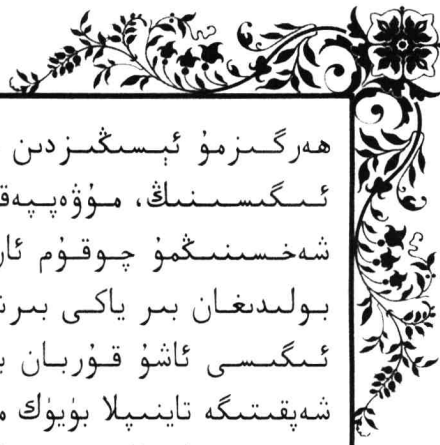 ھەرگىزمۇ ئېسىڭىزدىن
ئىگىسىنىڭ، مۇۋەپپەق
شەخسىنىڭمۇ چوقۇم ئار
بولىدىغان بىر ياكى بىر
ئىگىسى ئاشۇ قۇربان ب
شەپقىتىگە تايىنىپلا بۈيۈك م